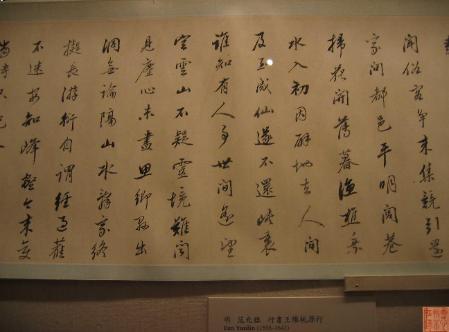 聞俗客爭來集競引還
家問都邑平明閭巷
掃花開薄暮漁樵乘
水入初因避地去人間
及至成仙遂不還峽裏
誰知有人事世間遙望
空雲山不疑靈境難聞
見塵心未盡思鄉縣出
洞無論隔山水辭家終
擬長游衍自謂經過舊
不迷安知峰壑今來變
當時只記
明 范允臨 行書王維桃源行
Fan Yunlin (1558-1641)